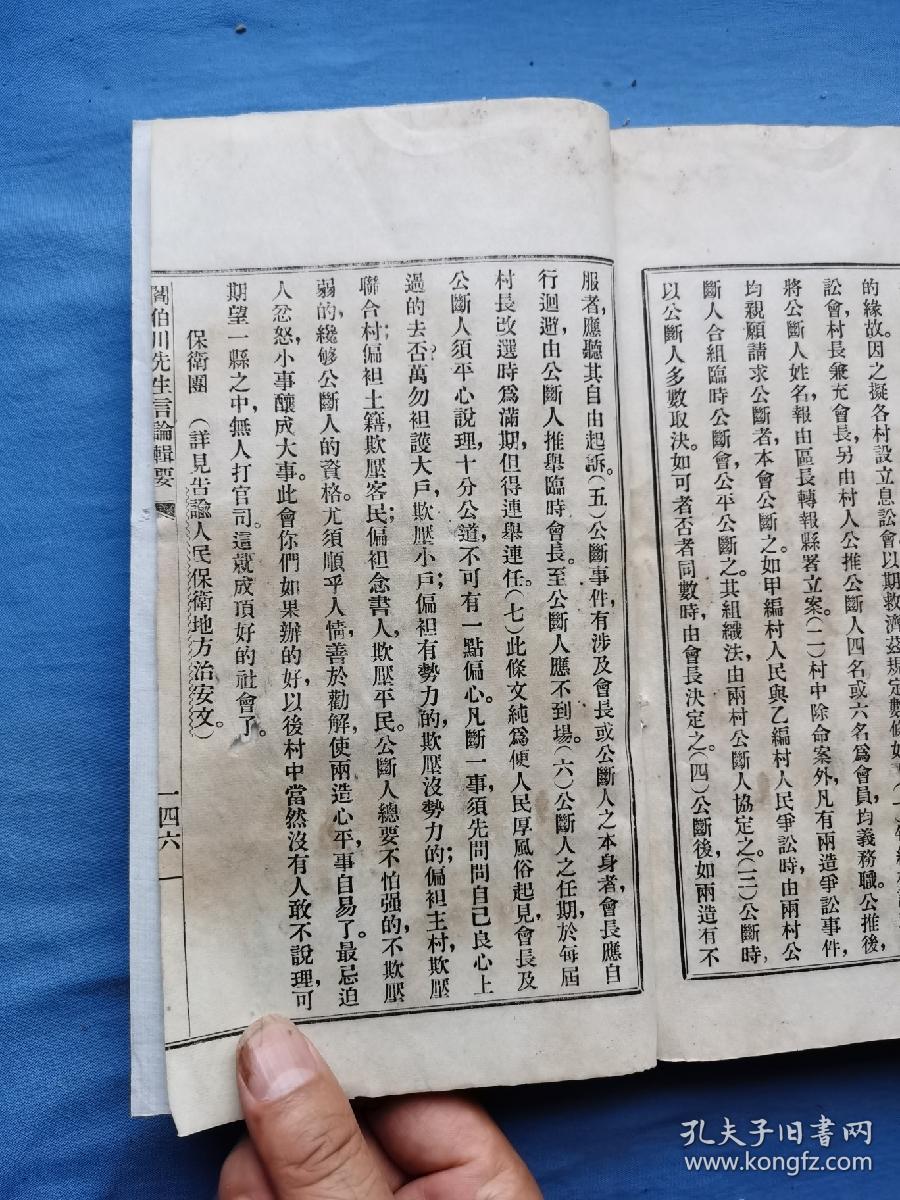 的緣故。因之擬各村設立息訟會以期救濟茲規定數條如
訟會,村長兼充會長,另由村人公推公斷人四名或六名爲會員,均義務職。公推後,
將公斷人姓名,報由區長轉報縣署立案。(二)村中除命案外,凡有兩造爭訟事件,
均親願請求公斷者,本會公斷之。如甲編村人民與乙編村人民爭訟時,由兩村公
斷人合組臨時公斷會,公平公斷之。其組織法,由兩村公斷人協定之。(三)公斷時,
以公斷人多數取決。如可者否者同數時,由會長決定之。(四)公斷後,如兩造有不
服者,應聽其自由起訴。(五)公斷事件,有涉及會長或公斷人之本身者,會長應自
行迴避,由公斷人推舉臨時會長。至公斷人應不到場。(六)公斷人之任期,於每屆
村長改選時爲滿期,但得連舉連任。(七)此條文純爲便人民厚風俗起見,會長及
公斷人須平心說理,十分公道,不可有一點偏心。凡斷一事,須先問問自己良心上
過的去否?萬勿袒護大戶,欺壓小戶;偏袒有勢力的,欺壓沒勢力的;偏袒主村,欺壓
聯合村;偏袒土籍,欺壓客民;偏袒念書人,欺壓平民。公斷人總要不怕强的,不欺壓
弱的,纔够公斷人的資格。尤須順乎人情,善於勸解,使兩造心平,事自易了。最忌迫
人忿怒,小事釀成大事。此會你們如果辦的好,以後村中當然沒有人敢不說理,可
期望一縣之中,無人打官司。這就成頂好的社會了。
保衛團 (詳見告諭人民保衛地方治安文)
閻伯川先生言論輯要
一四六
孔夫子旧书网
www.kongfz.com